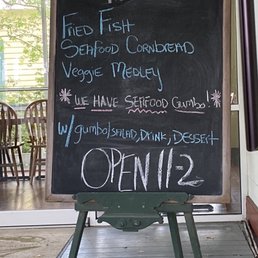 Fried Fish
Seafood Cornbread
Veggie Medley
*We Have Seafood Gumbo!*
w/ gumbo, salad, Drink, Dessert
Open 11-2